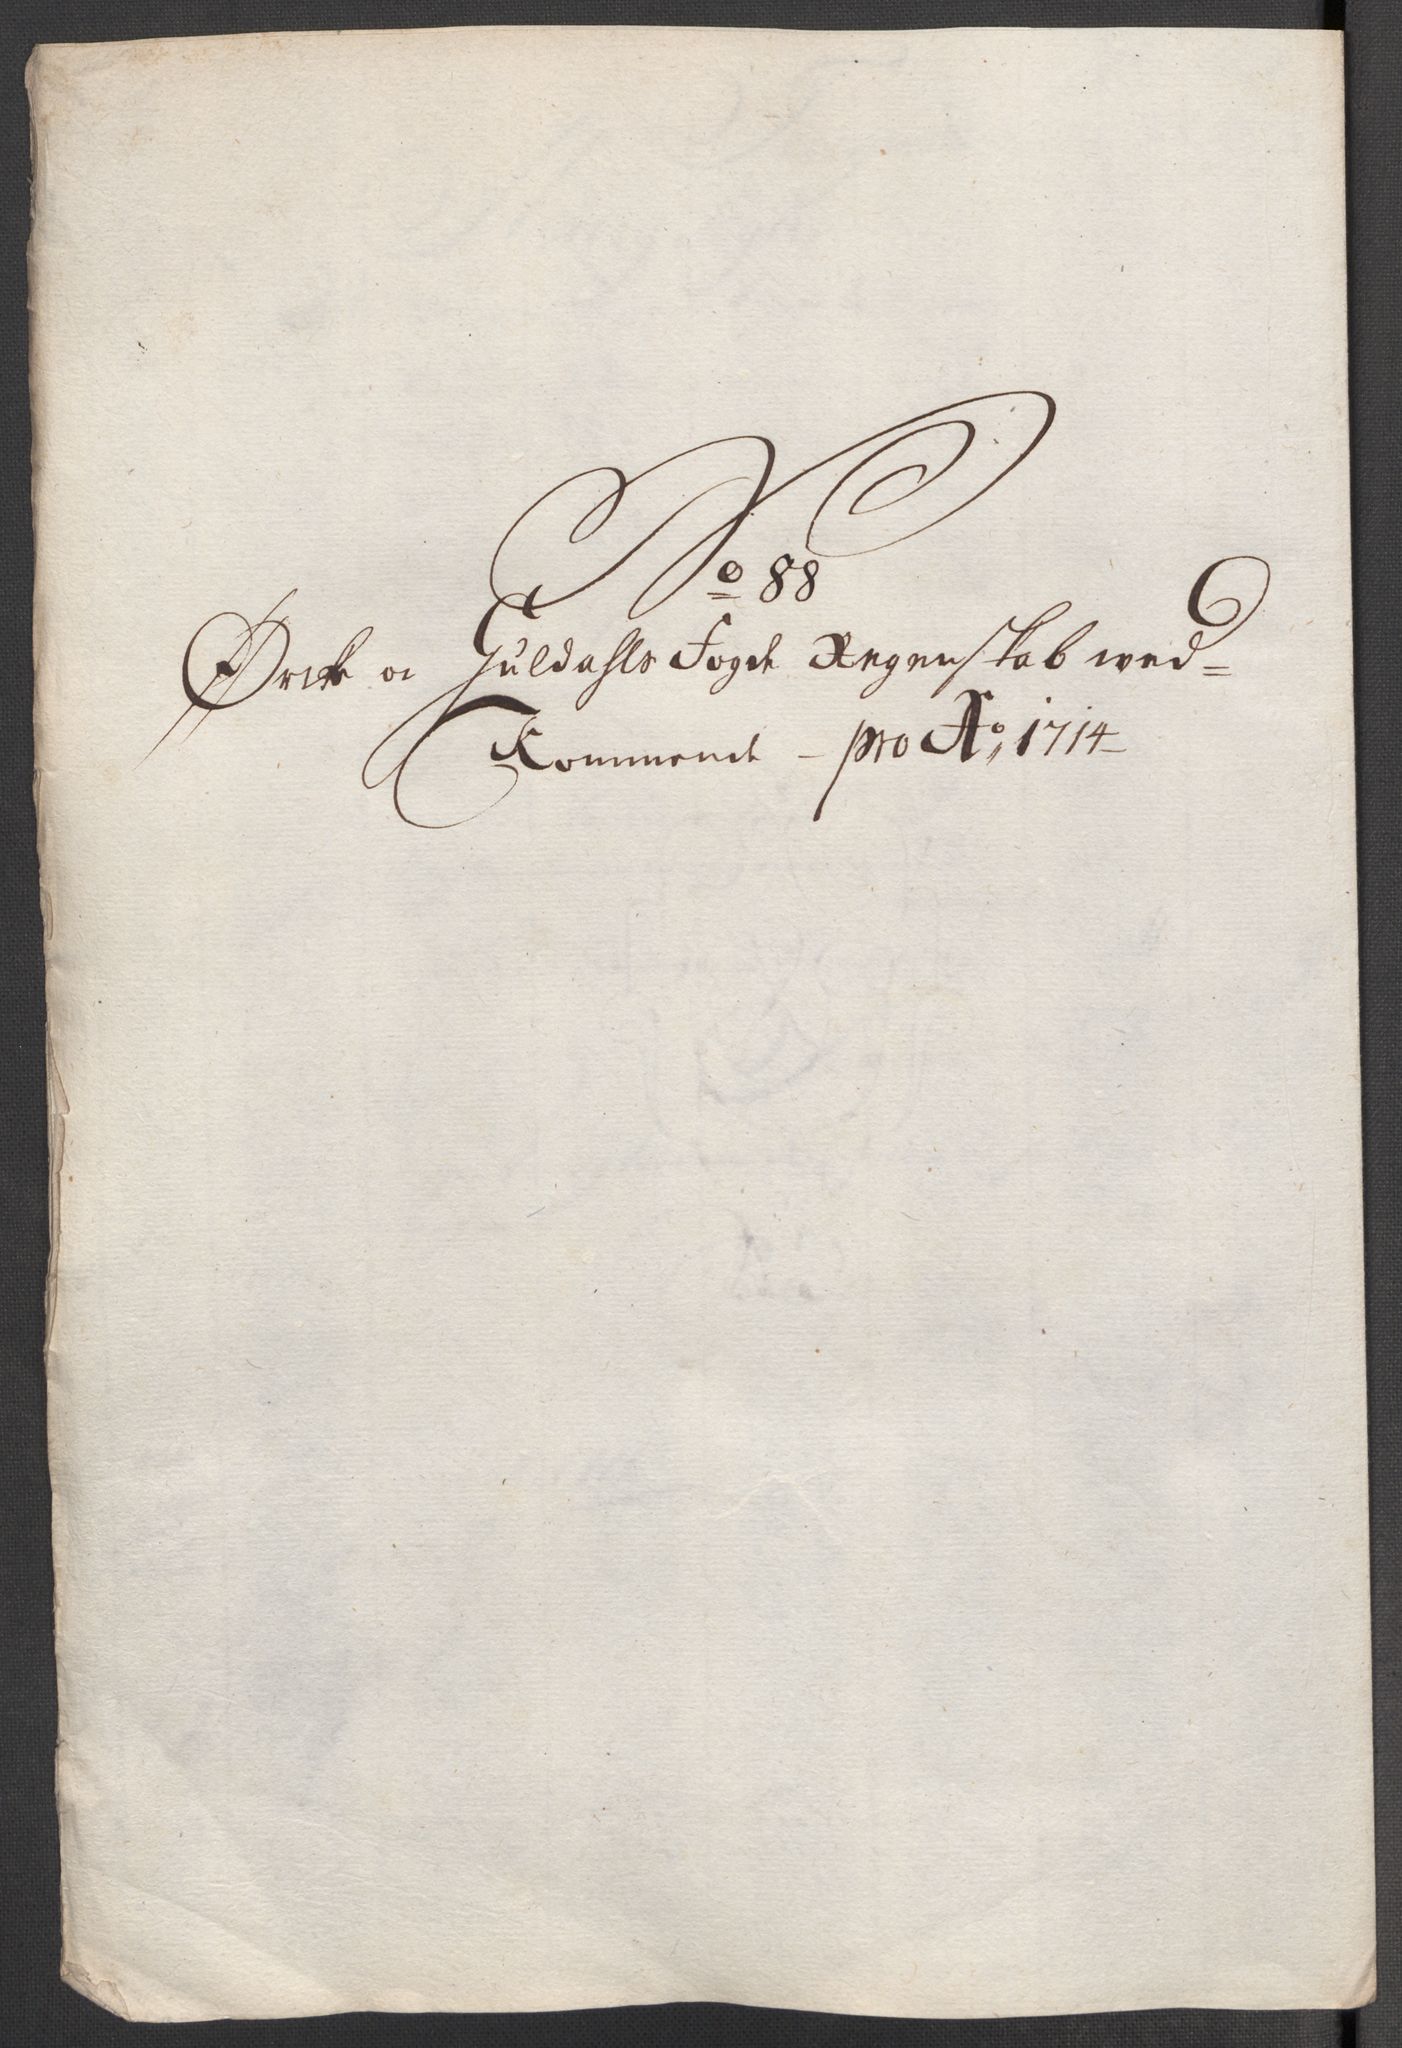 No 88
Ørcke oc Guldahls Fogde Regenskab wed=
Kommende - pro Ao, 1714